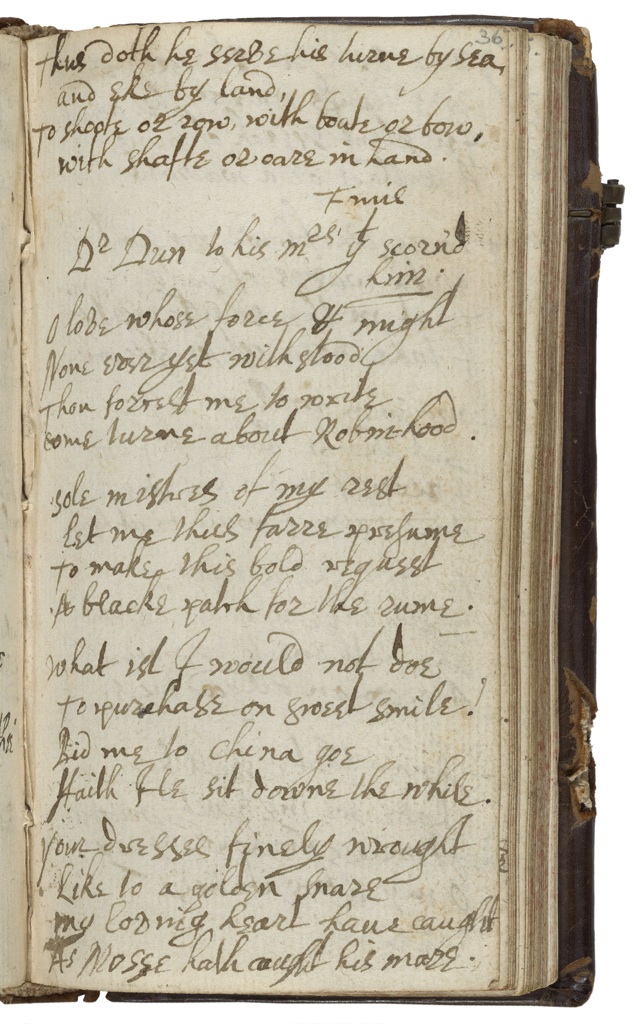 36
thus doth he serve his turne by sea,
and eke by land,
to shoote or row, with boate or bow,
with shafte or oare in hand.
Finis
Dr Dun to his mrs yt scorn'd
him:
O love whose force & might
None ever yet withstood
Thou forcest me to write
Come turne about Robin-hood.
sole mistres of my rest
let me thus farre presume
to make this bold request
A blacke patch for the rume.
what ist I would not doe
to purchase on sweet smile!
Bid me to China goe
Faith Ile sit downe the while.
your dresses finely wrought
like to a golden snare
my loving heart have caught
As Mosse hath caught his mare.